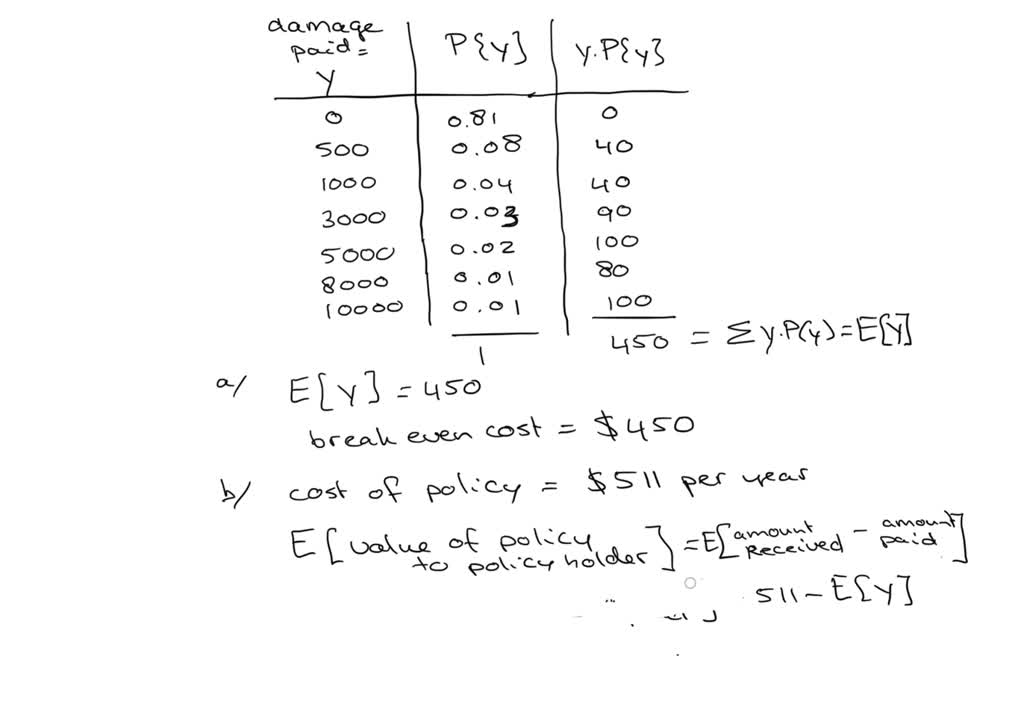 damage paid = Y P{y} y.P{y}
0 0.81 0
500 0.08 40
1000 0.04 40
3000 0.03 90
5000 0.02 100
8000 0.01 80
10000 0.01 100
1 450 = Σ y.P(y) = E[Y]
a/ E[Y] = 450
break even cost = $450
b/ cost of policy = $511 per year
E[value of policy to policy holder] = E[amount Received - amount paid]
511 - E[Y]